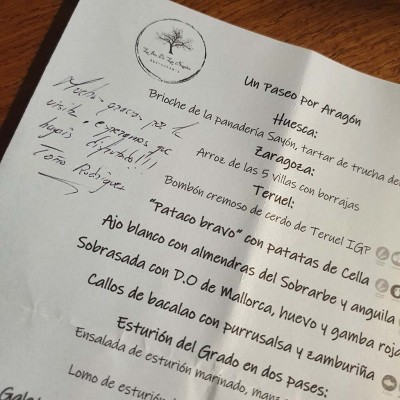 RESTAURANTE
Muchas gracias por la
visita, esperamos que
hayáis disfrutado!!!
Toño Rodríguez
Un Paseo por Aragón
Huesca:
Brioche de la panadería Sayón, tartar de trucha del
Zaragoza:
Arroz de las 5 Villas con borrajas
Teruel:
Bombón cremoso de cerdo de Teruel IGP
"Pataco bravo" con patatas de Cella
Ajo blanco con almendras del Sobrarbe y anguila
Sobrasada con D.O de Mallorca, huevo y gamba roja
Callos de bacalao con purrusalya y zamburiña
Esturión del Grado en dos pases:
Ensalada de esturión marinado,
Lomo de esturión